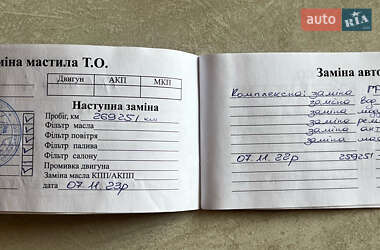 auto RIA
міна мастила Т.О.
Двигун АКП МКП
Наступна заміна
Пробіг, км 269251 км
Фільтр масла
Фільтр повітря
Фільтр палива
Фільтр салону
Промивка двигуна
Заміна масла КПП/АКПП
дата 07.11.23р
Заміна авто
Комплексна: заміна ГР
заміна
заміна
заміна
заміна
заміна
07.11.22р 259251